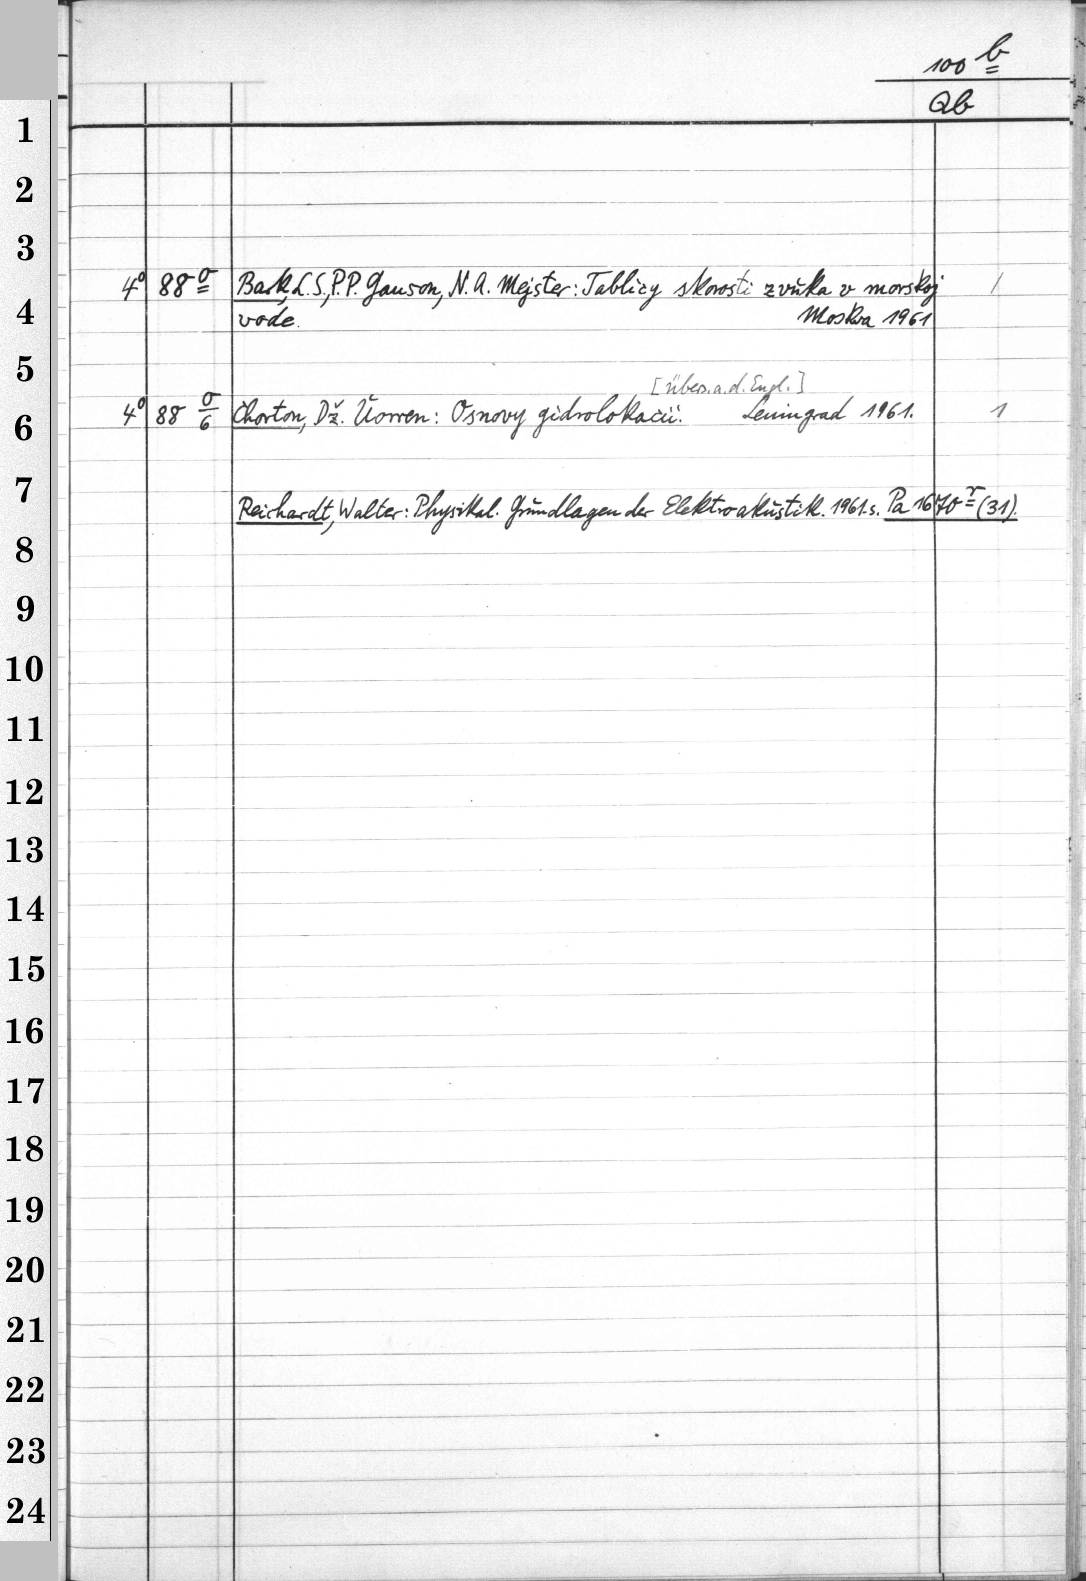 100 b
Qb
1
2
3
4° 88 σ Bark, L.S., P.P. Ganson, N.A. Mejster: Tablicy skorosti zvŭka v morskoj 1
4 vode. Moskva 1961
5
[übers.a.d.Engl.]
6 4° 88 σ/6 Chorton, Dž. Ŭorren: Osnovy gidrolokacii. Leningrad 1961. 1
7
Reichardt, Walter: Physikal. Grŭndlagen der Elektroakŭstik. 1961. s. Pa 1670 r (31).
8
9
10
11
12
13
14
15
16
17
18
19
20
21
22
23
24